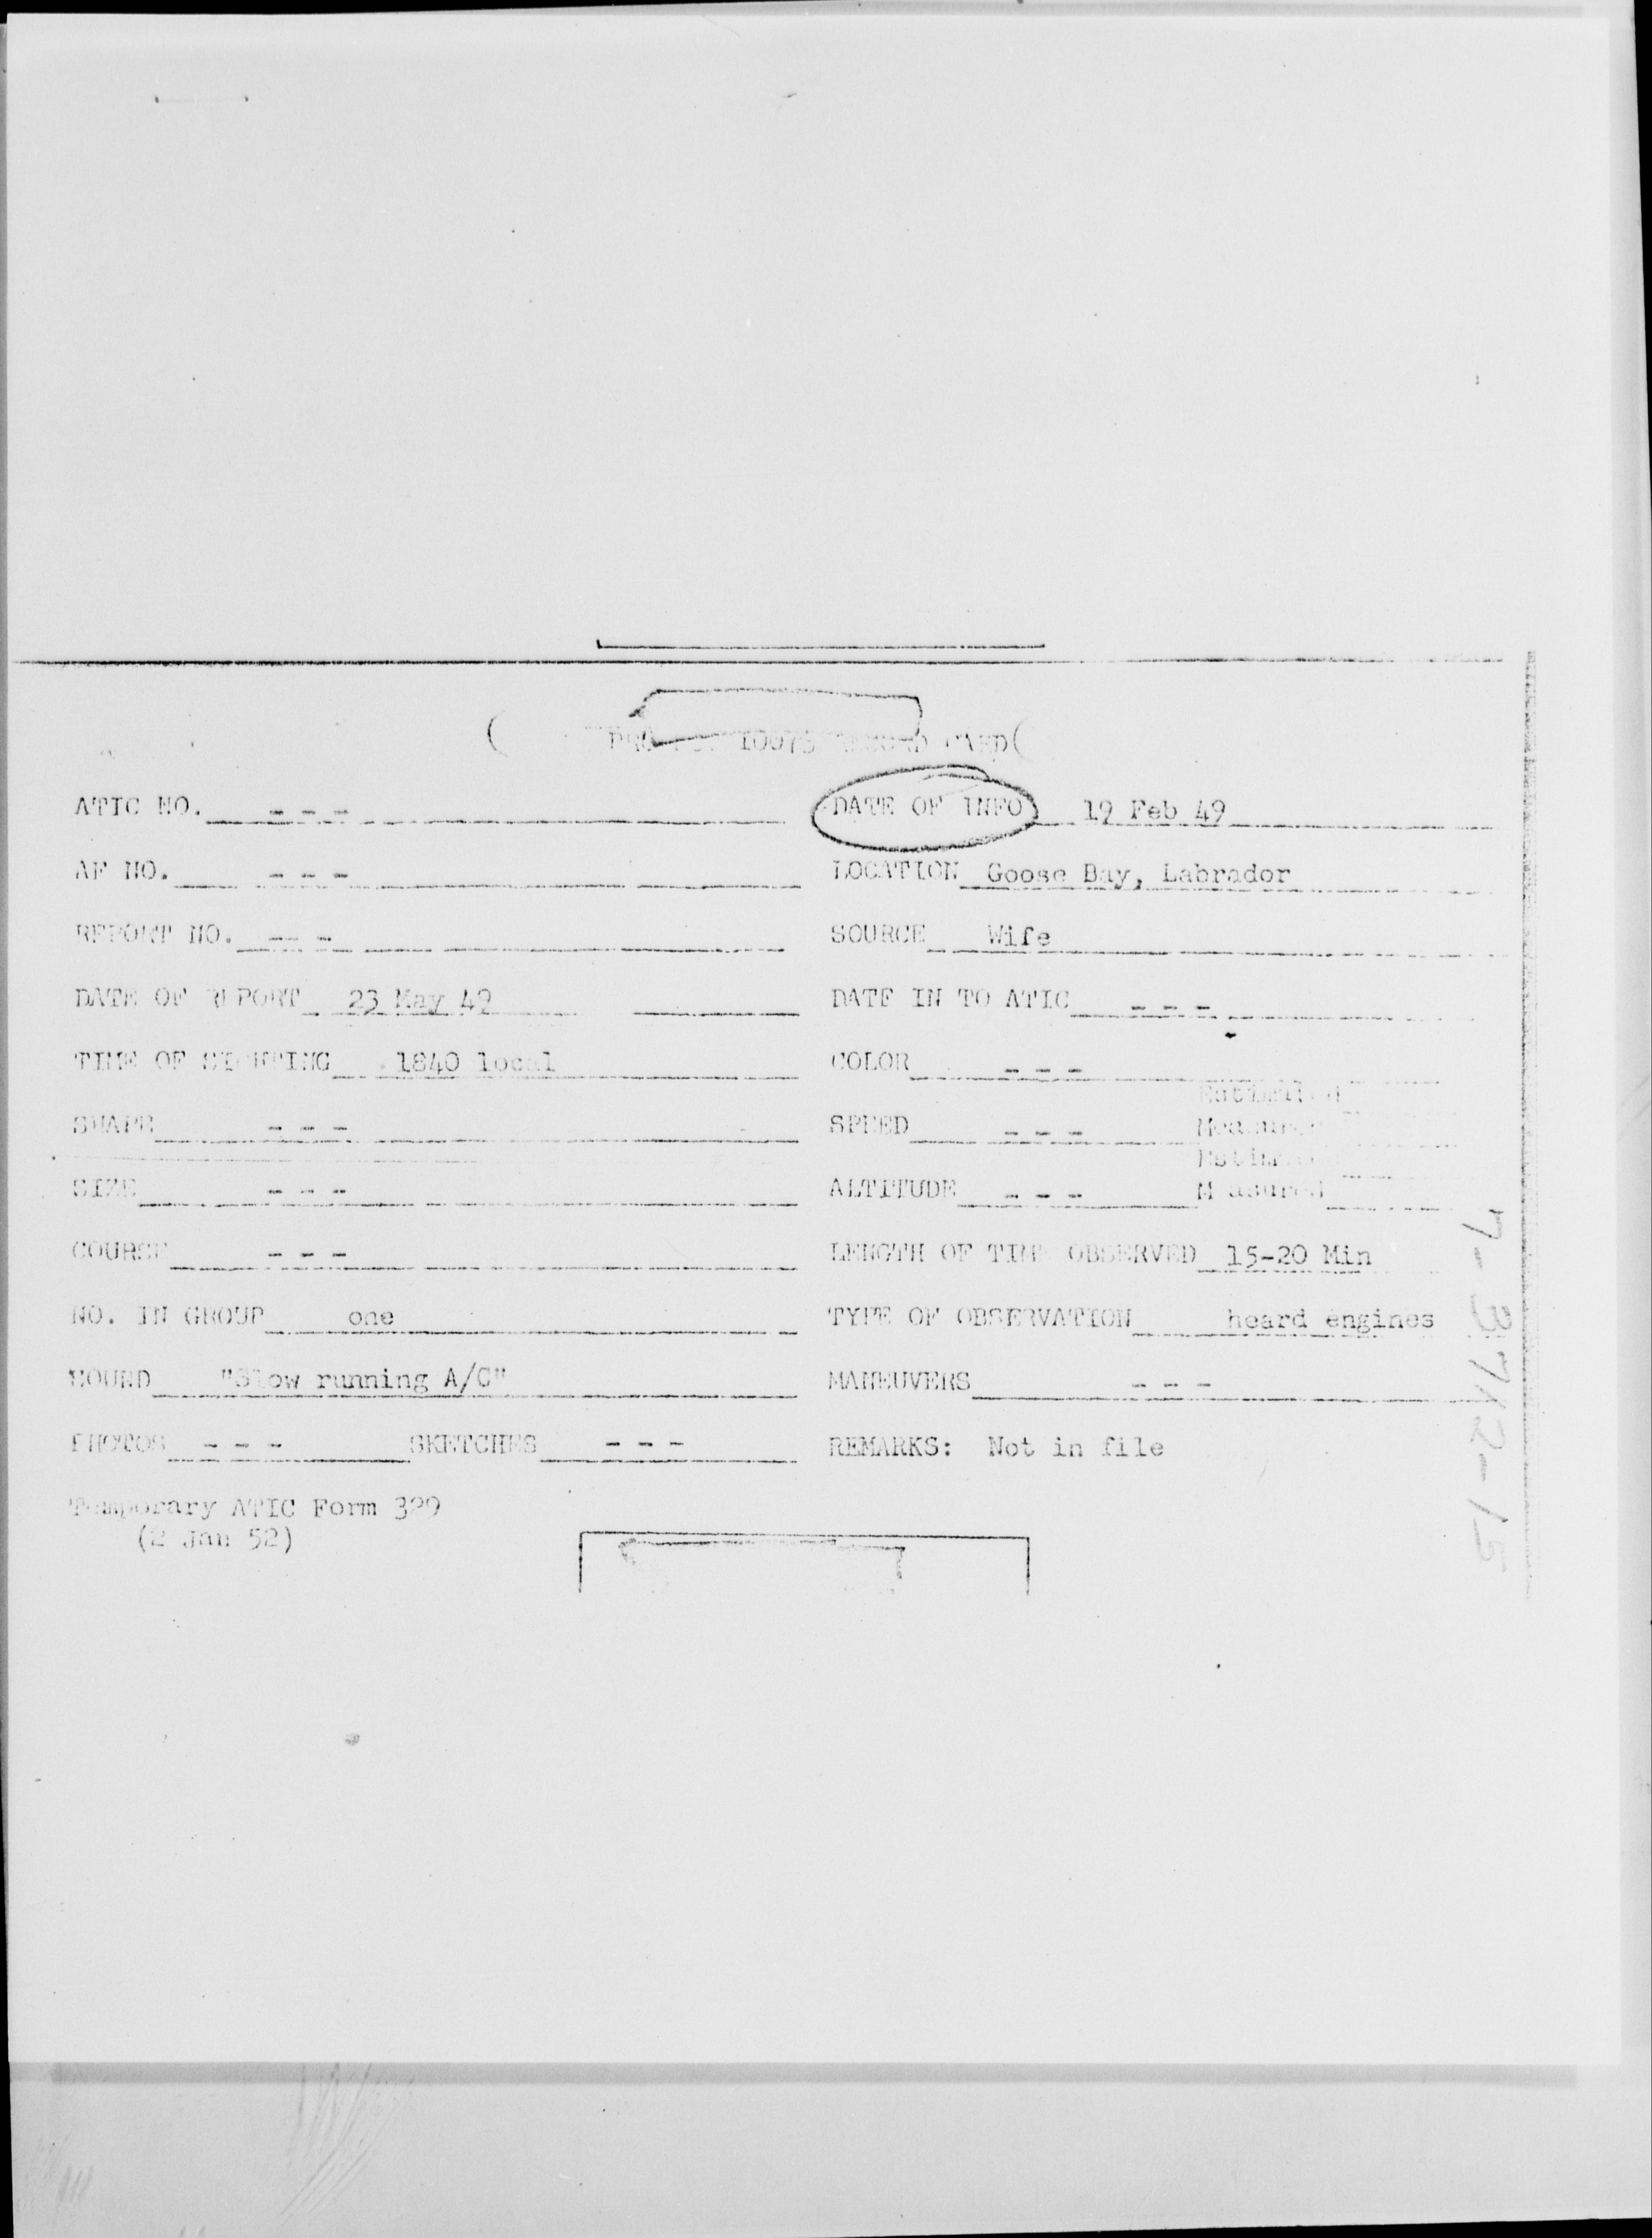 10073 CARD
ATIC NO. - - - DATE OF INFO 19 Feb 49
AF NO. - - - LOCATION Goose Bay, Labrador
REPORT NO. - - - SOURCE Wife
DATE OF REPORT 23 May 49 DATE IN TO ATIC - - -
TIME OF SIGHTING 1840 local COLOR - - -
Estimated
SHAPE - - - SPEED - - - Measured
Estimated
SIZE - - - ALTITUDE - - - Measured
COURSE - - - LENGTH OF TIME OBSERVED 15-20 Min
NO. IN GROUP one TYPE OF OBSERVATION heard engines
SOUND "Slow running A/C" MANEUVERS - - -
PHOTOS - - - SKETCHES - - - REMARKS: Not in file
Temporary ATIC Form 329
(2 Jan 52)
7-3712-15